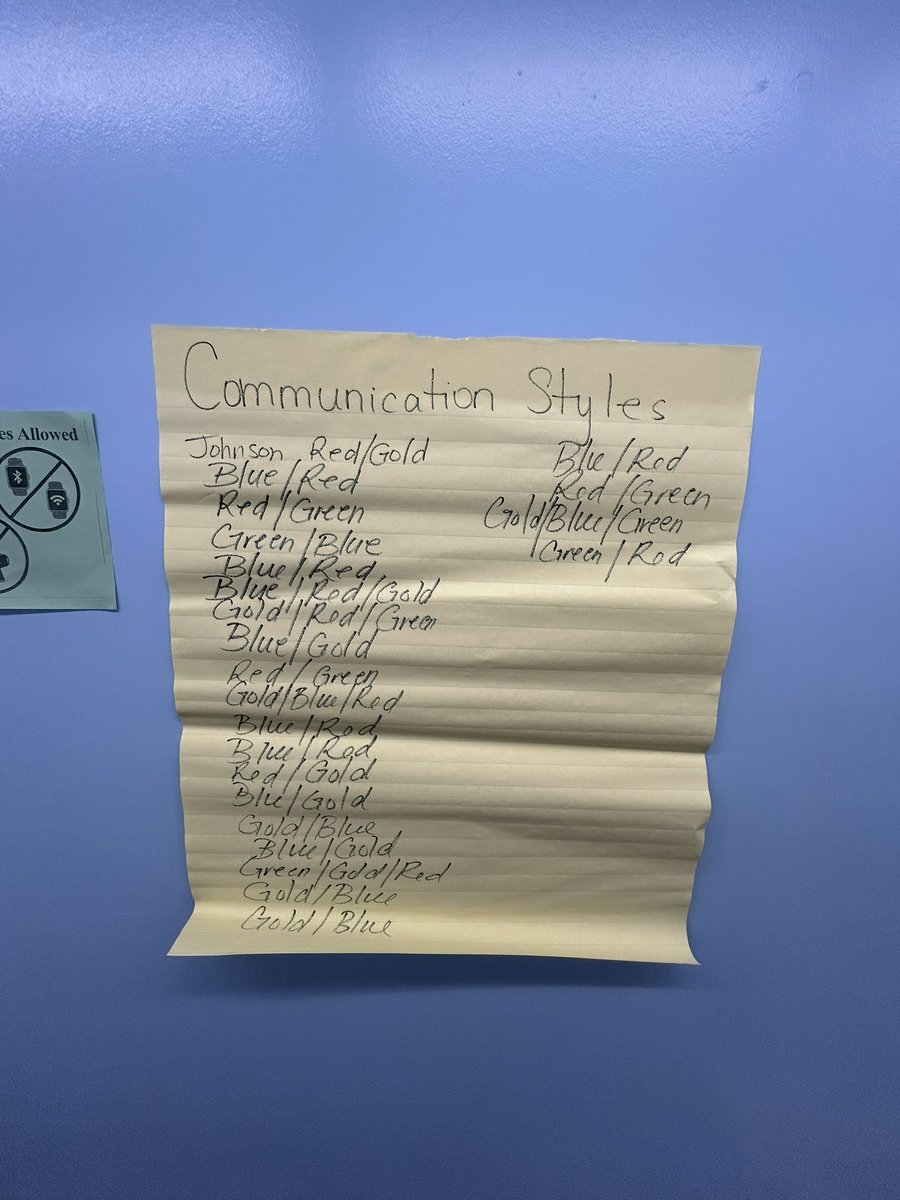 Communication Styles
Johnson Red/Gold
Blue/Red
Red/Green
Green/Blue
Blue/Red
Blue/Red/Gold
Gold/Red/Green
Blue/Gold
Red/Green
Gold/Blue/Red
Blue/Red
Blue/Red
Red/Gold
Blue/Gold
Gold/Blue
Blue/Gold
Green/Gold/Red
Gold/Blue
Gold/Blue
Blue/Red
Red/Green
Gold/Blue/Green
Green/Red
es Allowed